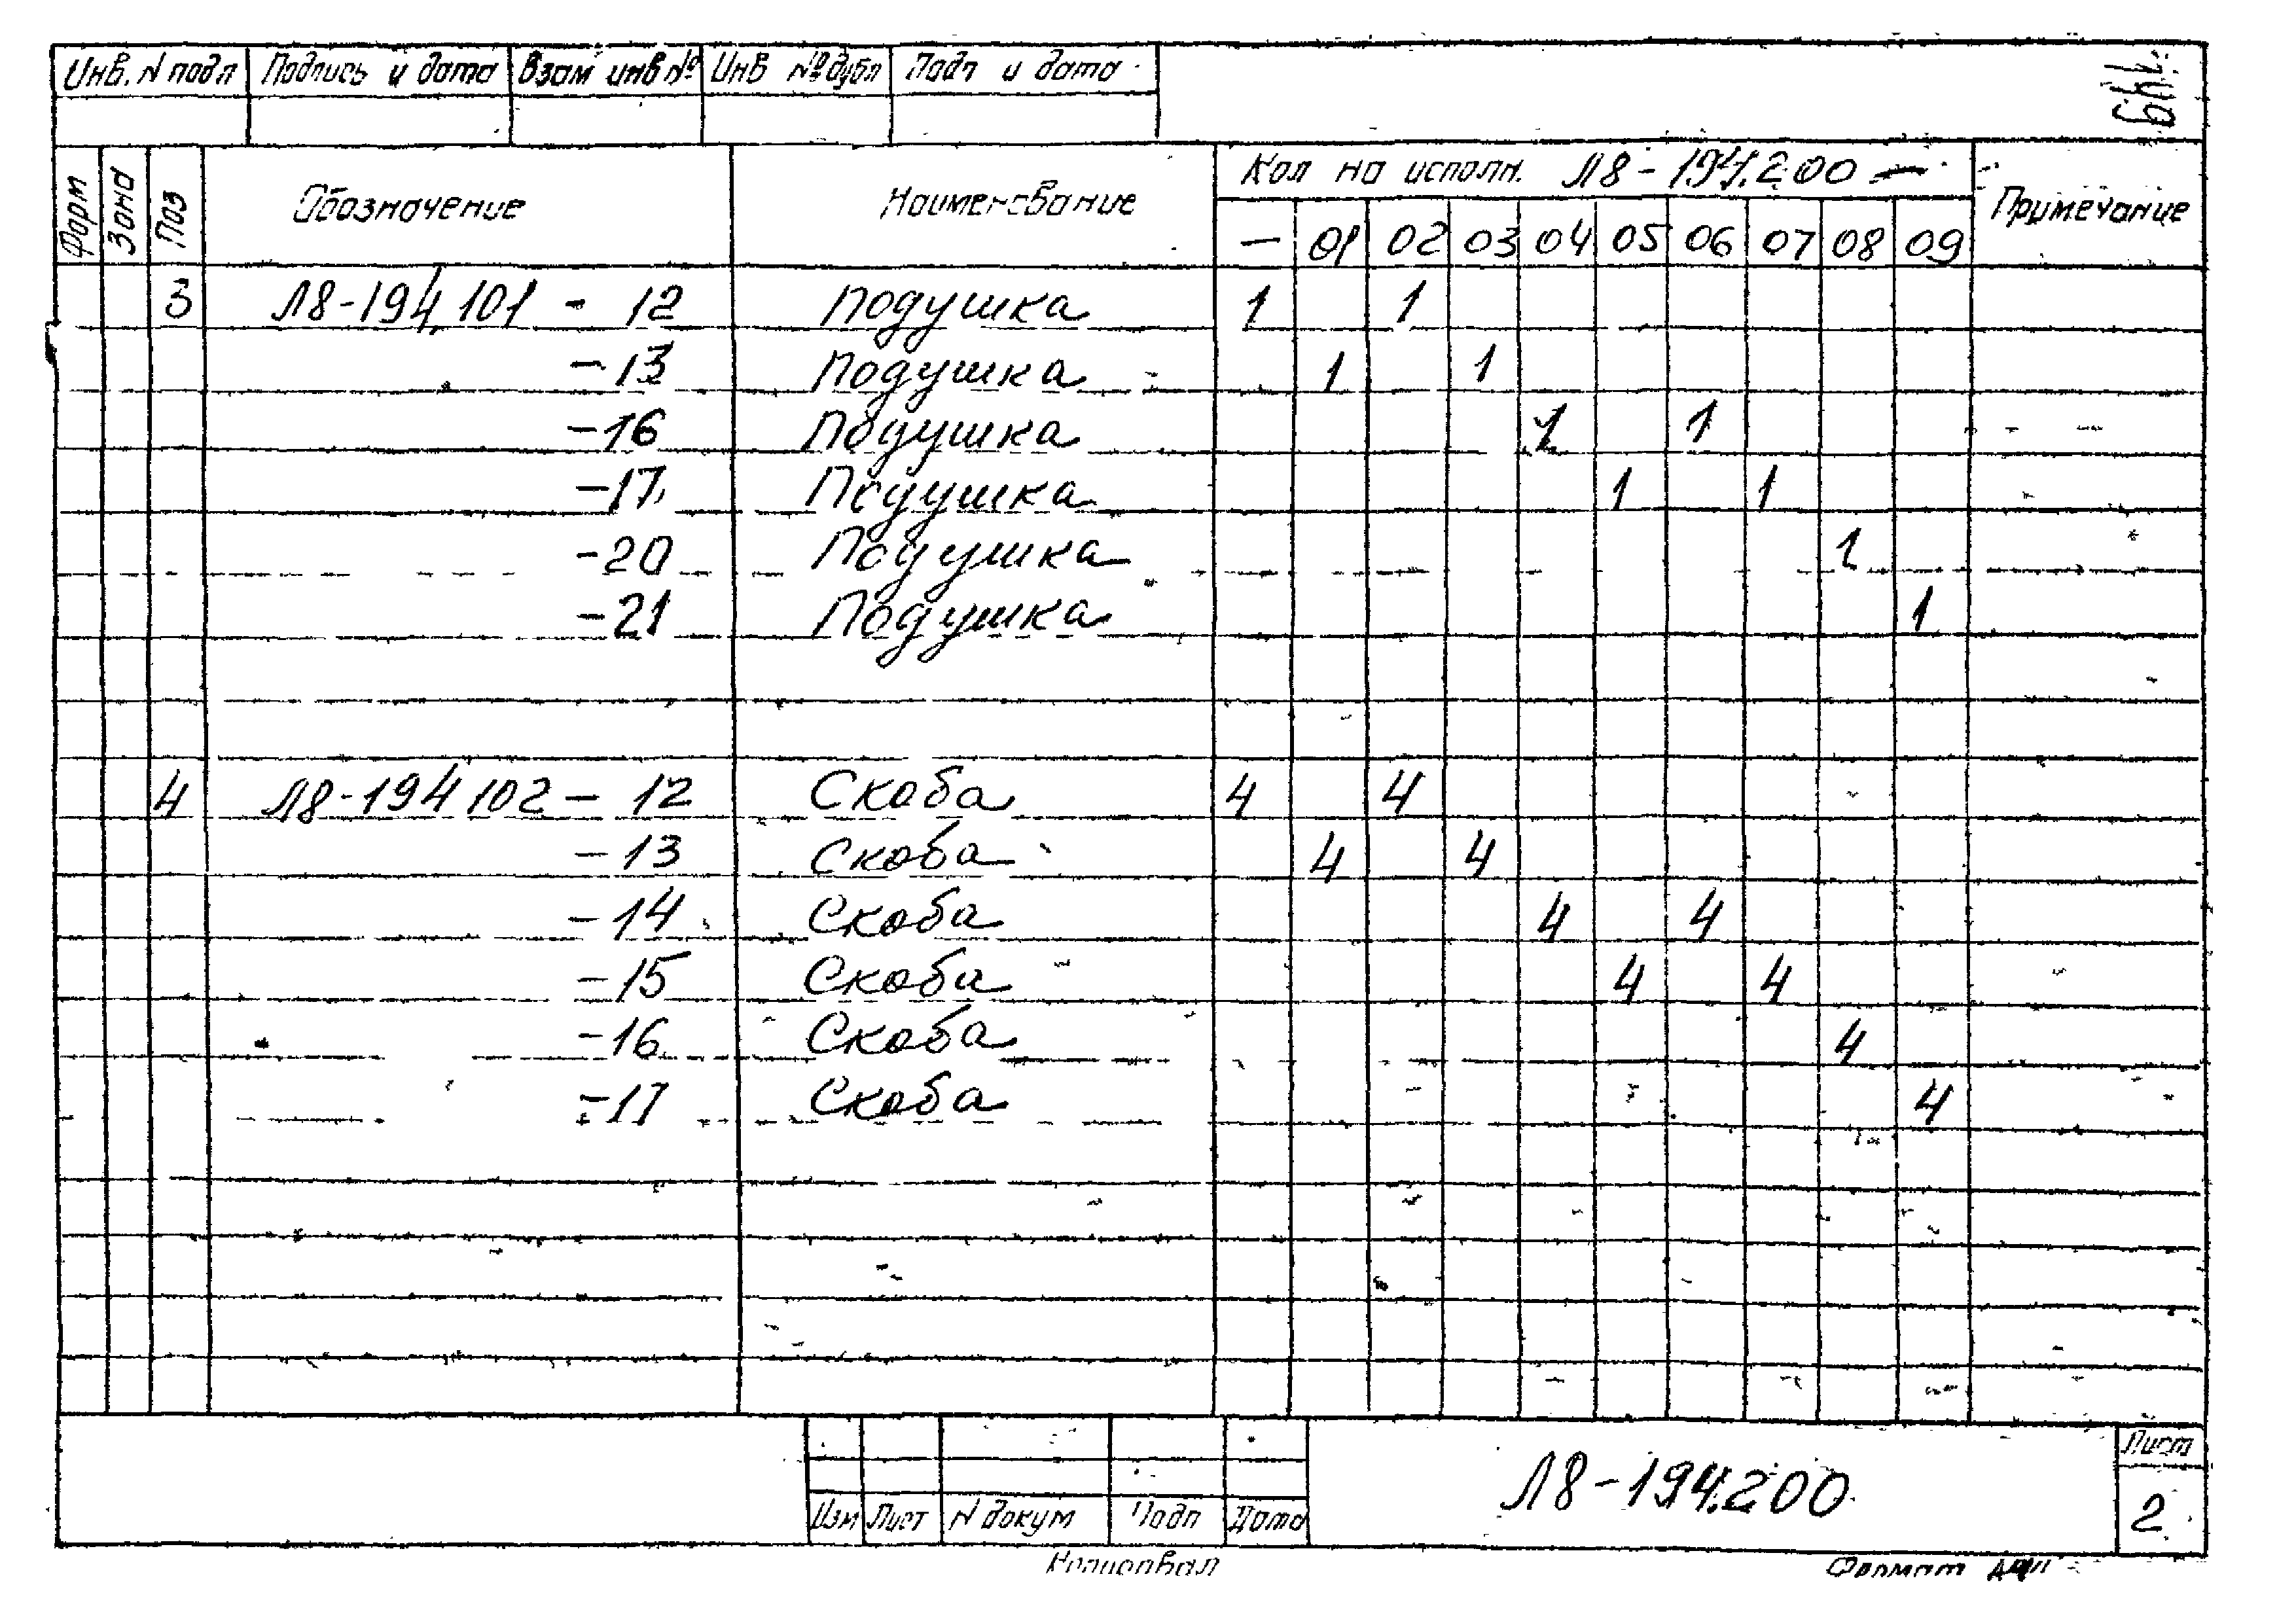 Инв. N подл Подпись и дата Взам инв № Инв № дубл Подп и дата
Форм Зона Поз Обозначение Наименование Кол на исполн. Л8-194.200 — Примечание
— 01 02 03 04 05 06 07 08 09
3 Л8-194.101 - 12 Подушка 1 1
-13 Подушка 1 1
-16 Подушка 1 1
-17 Подушка 1 1
-20 Подушка 1
-21 Подушка 1
4 Л8-194 102 - 12 Скоба 4 4
-13 Скоба 4 4
-14 Скоба 4 4
-15 Скоба 4 4
-16 Скоба 4
-17 Скоба 4
Л8-194.200
Лист
2
Изм Лист N докум Подп Дата
Копировал Формат